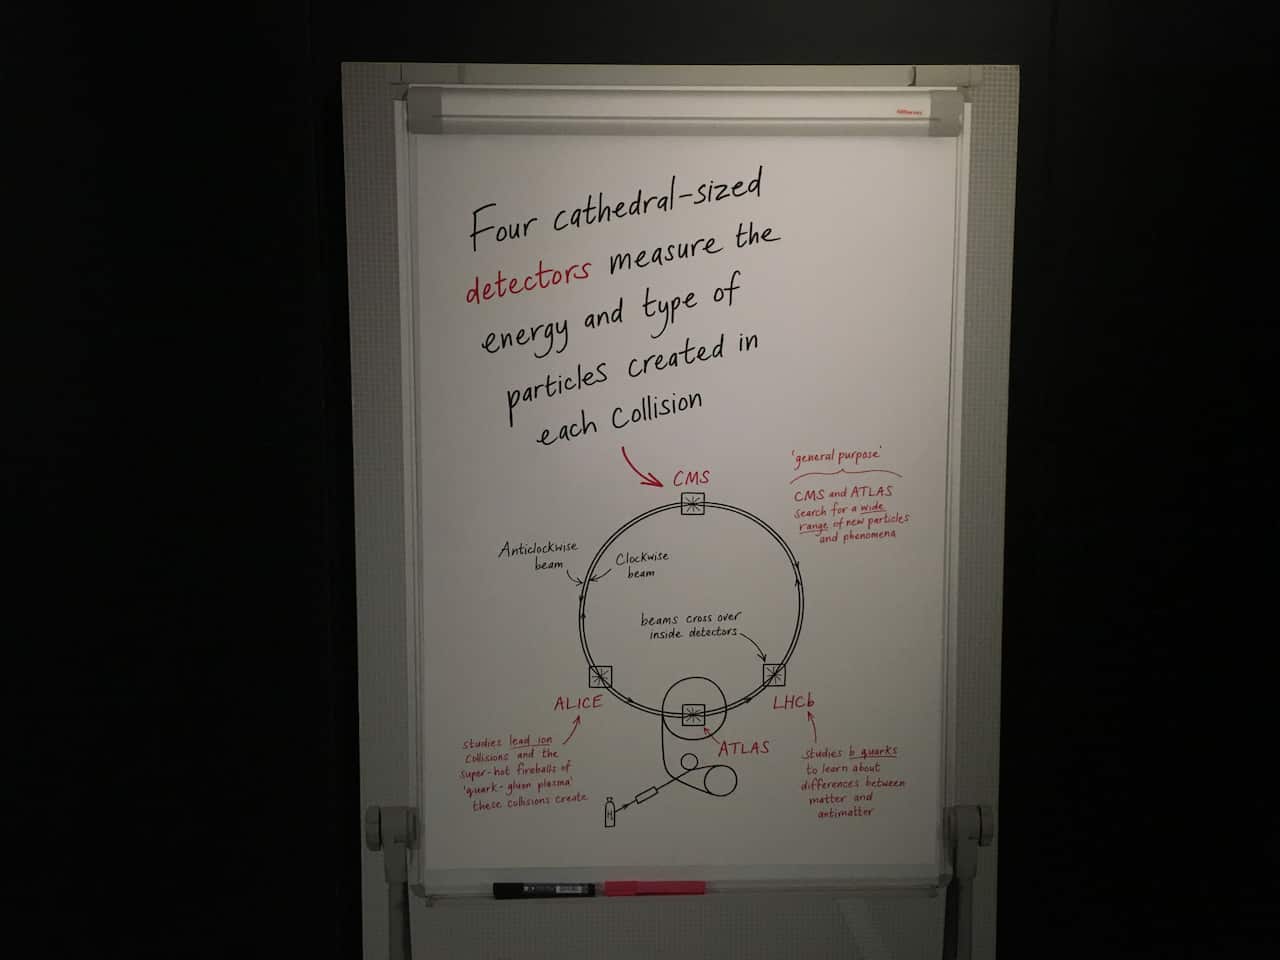 Four cathedral-sized
detectors measure the
energy and type of
particles created in
each Collision
CMS
'general purpose'
CMS and ATLAS
search for a wide
range of new particles
and phenomena
Anticlockwise
beam
Clockwise
beam
beams cross over
inside detectors
ALICE
LHCb
ATLAS
studies lead ion
Collisions and the
super-hot fireballs of
'quark-gluon plasma'
these collisions create
studies b quarks
to learn about
differences between
matter and
antimatter